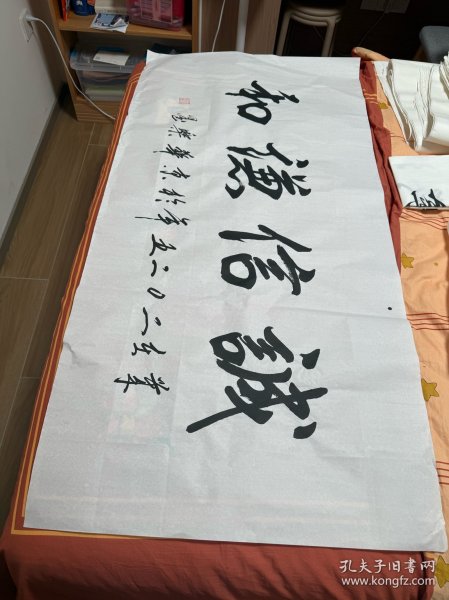 誠信德和
二〇二五年於京華
孔夫子旧书网
www.kongfz.com